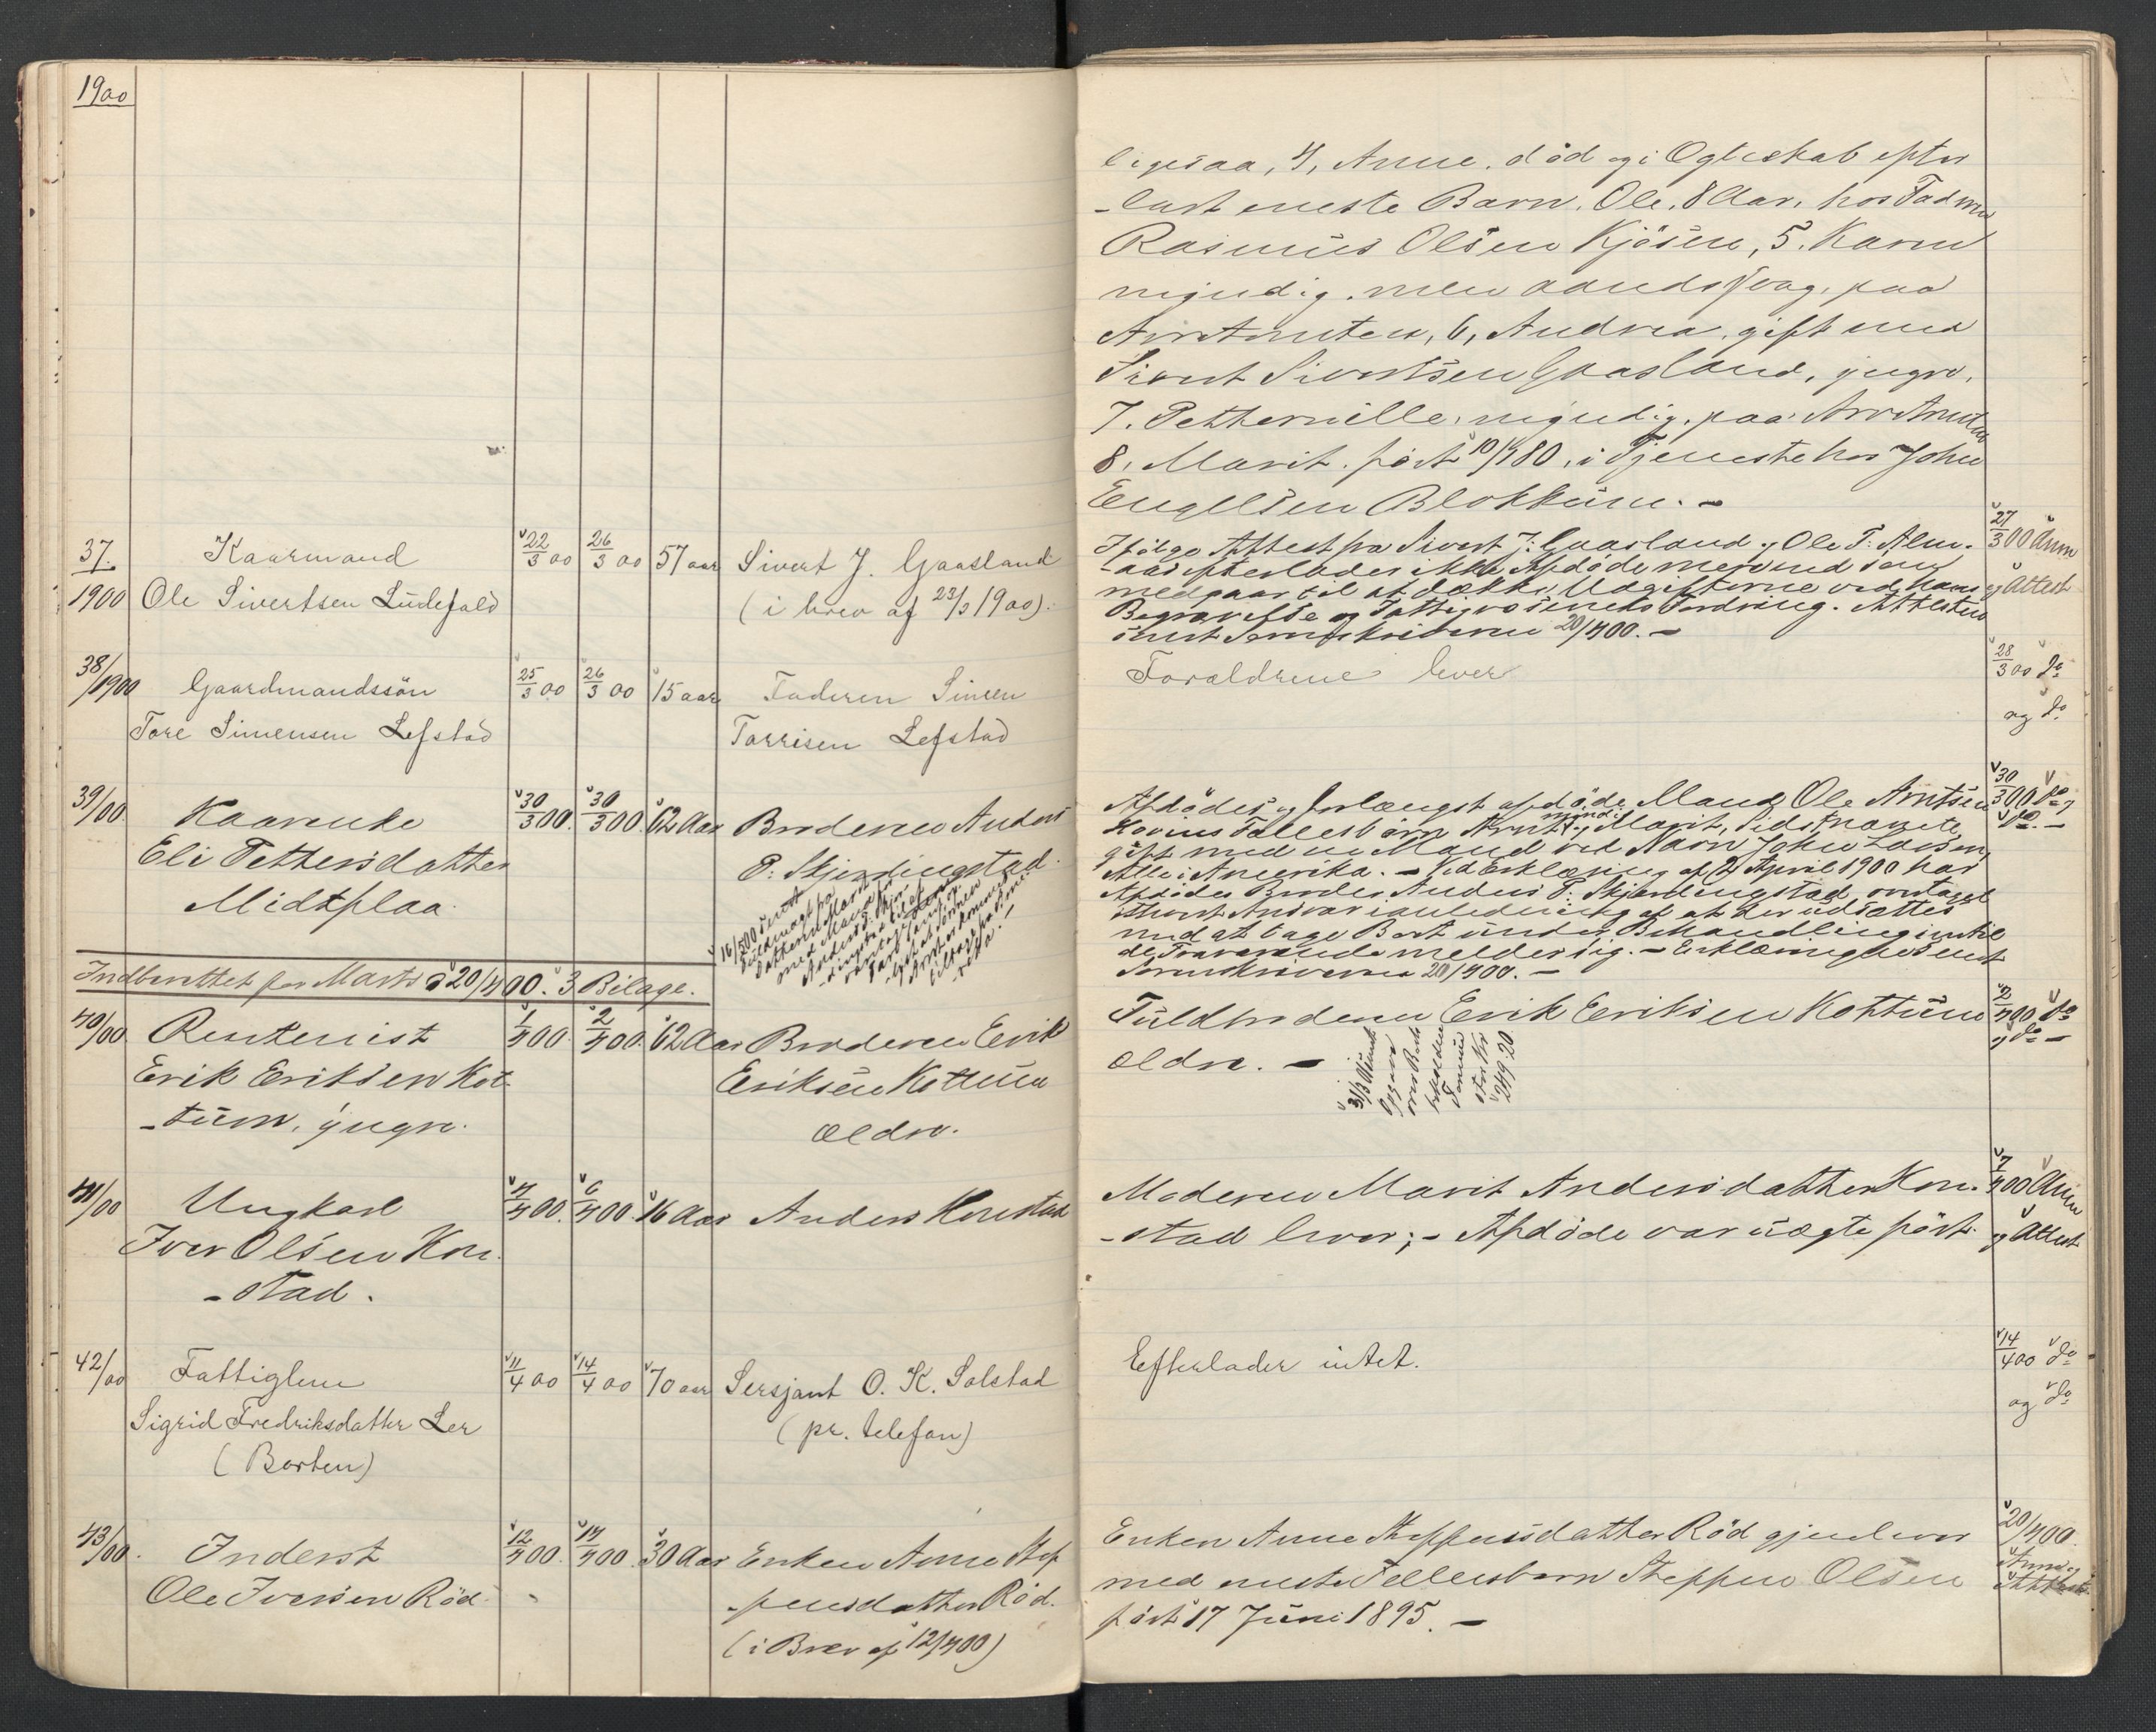 1900
37.
1900
Kaarmand
Ole Sivertsen Ludefald
22/3 00
26/3 00
57 aar
Sivert J. Gaasland
(i brev af 23/3 1900).
38/1900
Gaardmandssön
Tore Simensen Lefstad
25/3 00
26/3 00
15 aar
Faderen Simen
Torrisen Lefstad
39/00
Kaarenke
Eli Pettersdatter
Midtplaa
30/3 00.
30/3 00.
62 Aar
Broderen Anders
P. Skjerdingstad
16/5 00 sendt
Indberettet for Marts d 20/4 00. 3 Bilage.
40/00
Rentenist
Erik Eriksen Kot
-tum, yngre.
1/4 00
2/4 00.
62 Aar
Broderen Erik
Eriksen Kottum
ældre.
41/00
Ungkarl
Iver Olsen Kon
-stad.
4/4 00.
6/4 00.
16 Aar
Anders Konstad
42/00
Fattiglem
Sigrid Fredriksdatter Ler
(Borten)
11/4 00
14/4 00
70 aar
Sersjant O. K. Solstad
(pr. telefon)
43/00.
Inderst
Ole Iversen Röd
12/4 00.
14/4 00
30 Aar
Enken Anne Stef
-pensdatter Röd.
(i Brev af 12/4 00)
ligesaa, 4, Anne, död og i Ægteskab efter
-ladt eneste Barn, Ole, 8 Aar, hos Faderen
Rasmus Olsen Kjösen, 5. Karen
myndig, men aandssvag, paa
6, Andrea, gift med
Sivert Sivertsen Gaasland, yngre,
7. Petternille, myndig, paa
8, Marit, född 10/4 80, i Tjeneste hos John
Engelsen Blokkum. -
Ifölge Attest fra Sivert J. Gaasland og Ole T. Alm-
-aas efterlader ikke Afdöde mere end som
medgaar til at dække Udgifterne ved hans
Begravelse og Fattigvæsenets Fordring. Attesten
sendt Sorenskriveren 20/4 00. -
27/3 00 Anm
og Attest
Forældrene lever
28/3 00 do
og do
Afdödes og forlængst afdöde Mand Ole Arntsen
Fællesbörn Arnt og Marit, myndige, Sidstnævnte
gift med en Mand ved Navn John Larsen,
Alle i Amerika. - Ved Erklæring af 2 April 1900 har
Afdödes Broder Anders P. Skjerdingstad
Ansvar i anledning af at der udsættes
med at tage Boet under Behandling indtil
de Fraværende melder sig. - Erklæringen sendt
Sorenskriveren 20/4 00. -
30/3 00 do og
do. -
Fuldbroderen Erik Eriksen Kottum
ældre. -
249.20
2/4 00 do
og do -
Moderen Marit Andersdatter Kon-
-stad lever; - Afdöde var uægte född.
7/4 00 Anm
og Attest
Efterlader intet.
14/4 00 do
og do
Enken Anne Steffensdatter Röd gjenlever
med eneste Fællesbarn Steffen Olsen
född 17 Juni 1895. -
20/4 00.
Anm. og
Attest.